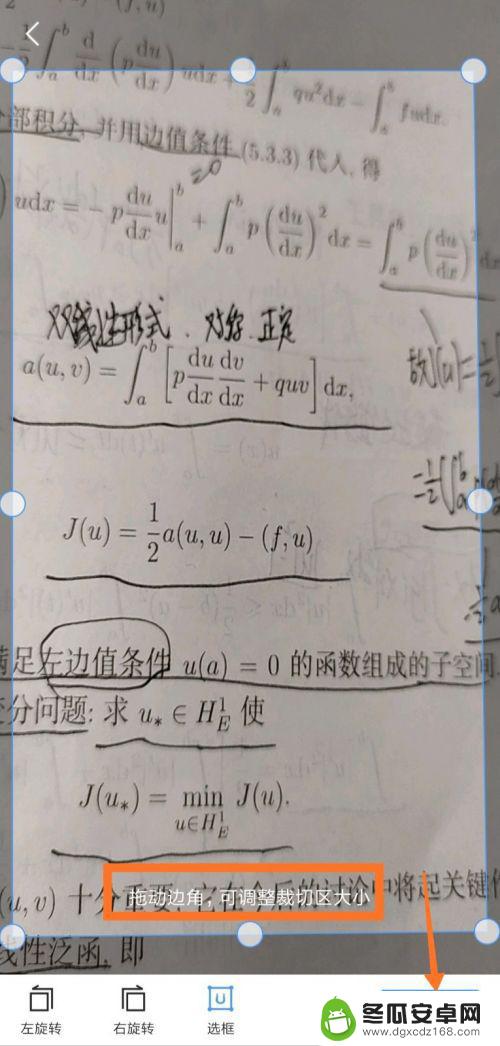 $-\frac{1}{2}\int_a^b \frac{d}{dx}\left(p\frac{du}{dx}\right)udx + \frac{1}{2}\int_a^b qu^2dx - \int_a^b fudx.$
部积分, 并用边值条件 (5.3.3) 代入, 得
=0
$udx = -p\frac{du}{dx}u\Big|_a^b + \int_a^b p\left(\frac{du}{dx}\right)^2 dx = \int_a^b p\left(\frac{du}{dx}\right)^2 dx$
双线性形式. 对称. 正定
$a(u,v) = \int_a^b \left[p\frac{du}{dx}\frac{dv}{dx} + quv\right]dx,$
故J(u)=$\frac{1}{2}$
$J(u) = \frac{1}{2}a(u,u) - (f,u)$
满足左边值条件 $u(a) = 0$ 的函数组成的子空间.
变分问题: 求 $u_* \in H_E^1$ 使
$J(u_*) = \min_{u \in H_E^1} J(u).$
$(u,v)$ 十分重要, 它在今后的讨论中将起关键作
拖动边角，可调整裁切区大小
线性泛函, 即
左旋转 右旋转 选框
冬瓜安卓网
www.dgxcdz168.com